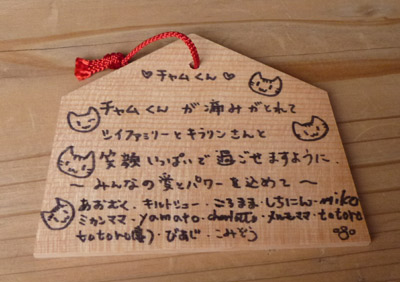 ♡チャムくん♡
チャムくんが痛みがとれて
ツイファミリーとキラリンさんと
笑顔いっぱいで過ごせますように.
～みんなの愛とパワーを込めて～
あおむく・キルトジュー・ころまま・しちにん・miko
ミカンママ・yamato・charlatto・・totoro
totoro(専)・ぴあじ・こみぞう